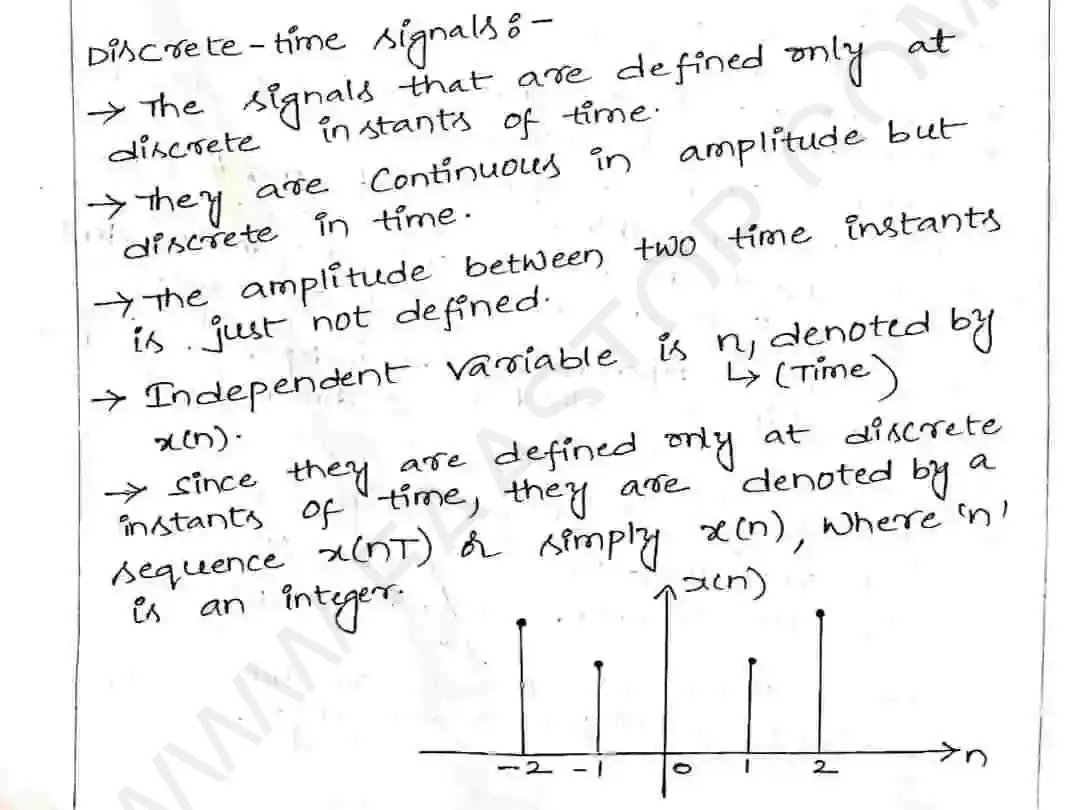 Discrete-time signals :-
→ The signals that are defined only at
discrete instants of time.
→ They are continuous in amplitude but
discrete in time.
→ The amplitude between two time instants
is just not defined.
→ Independent variable is n, denoted by
↳ (Time)
x(n).
→ Since they are defined only at discrete
instants of time, they are denoted by a
sequence x(nT) or simply x(n), where 'n'
is an integer.
x(n)
-2 -1 0 1 2
n